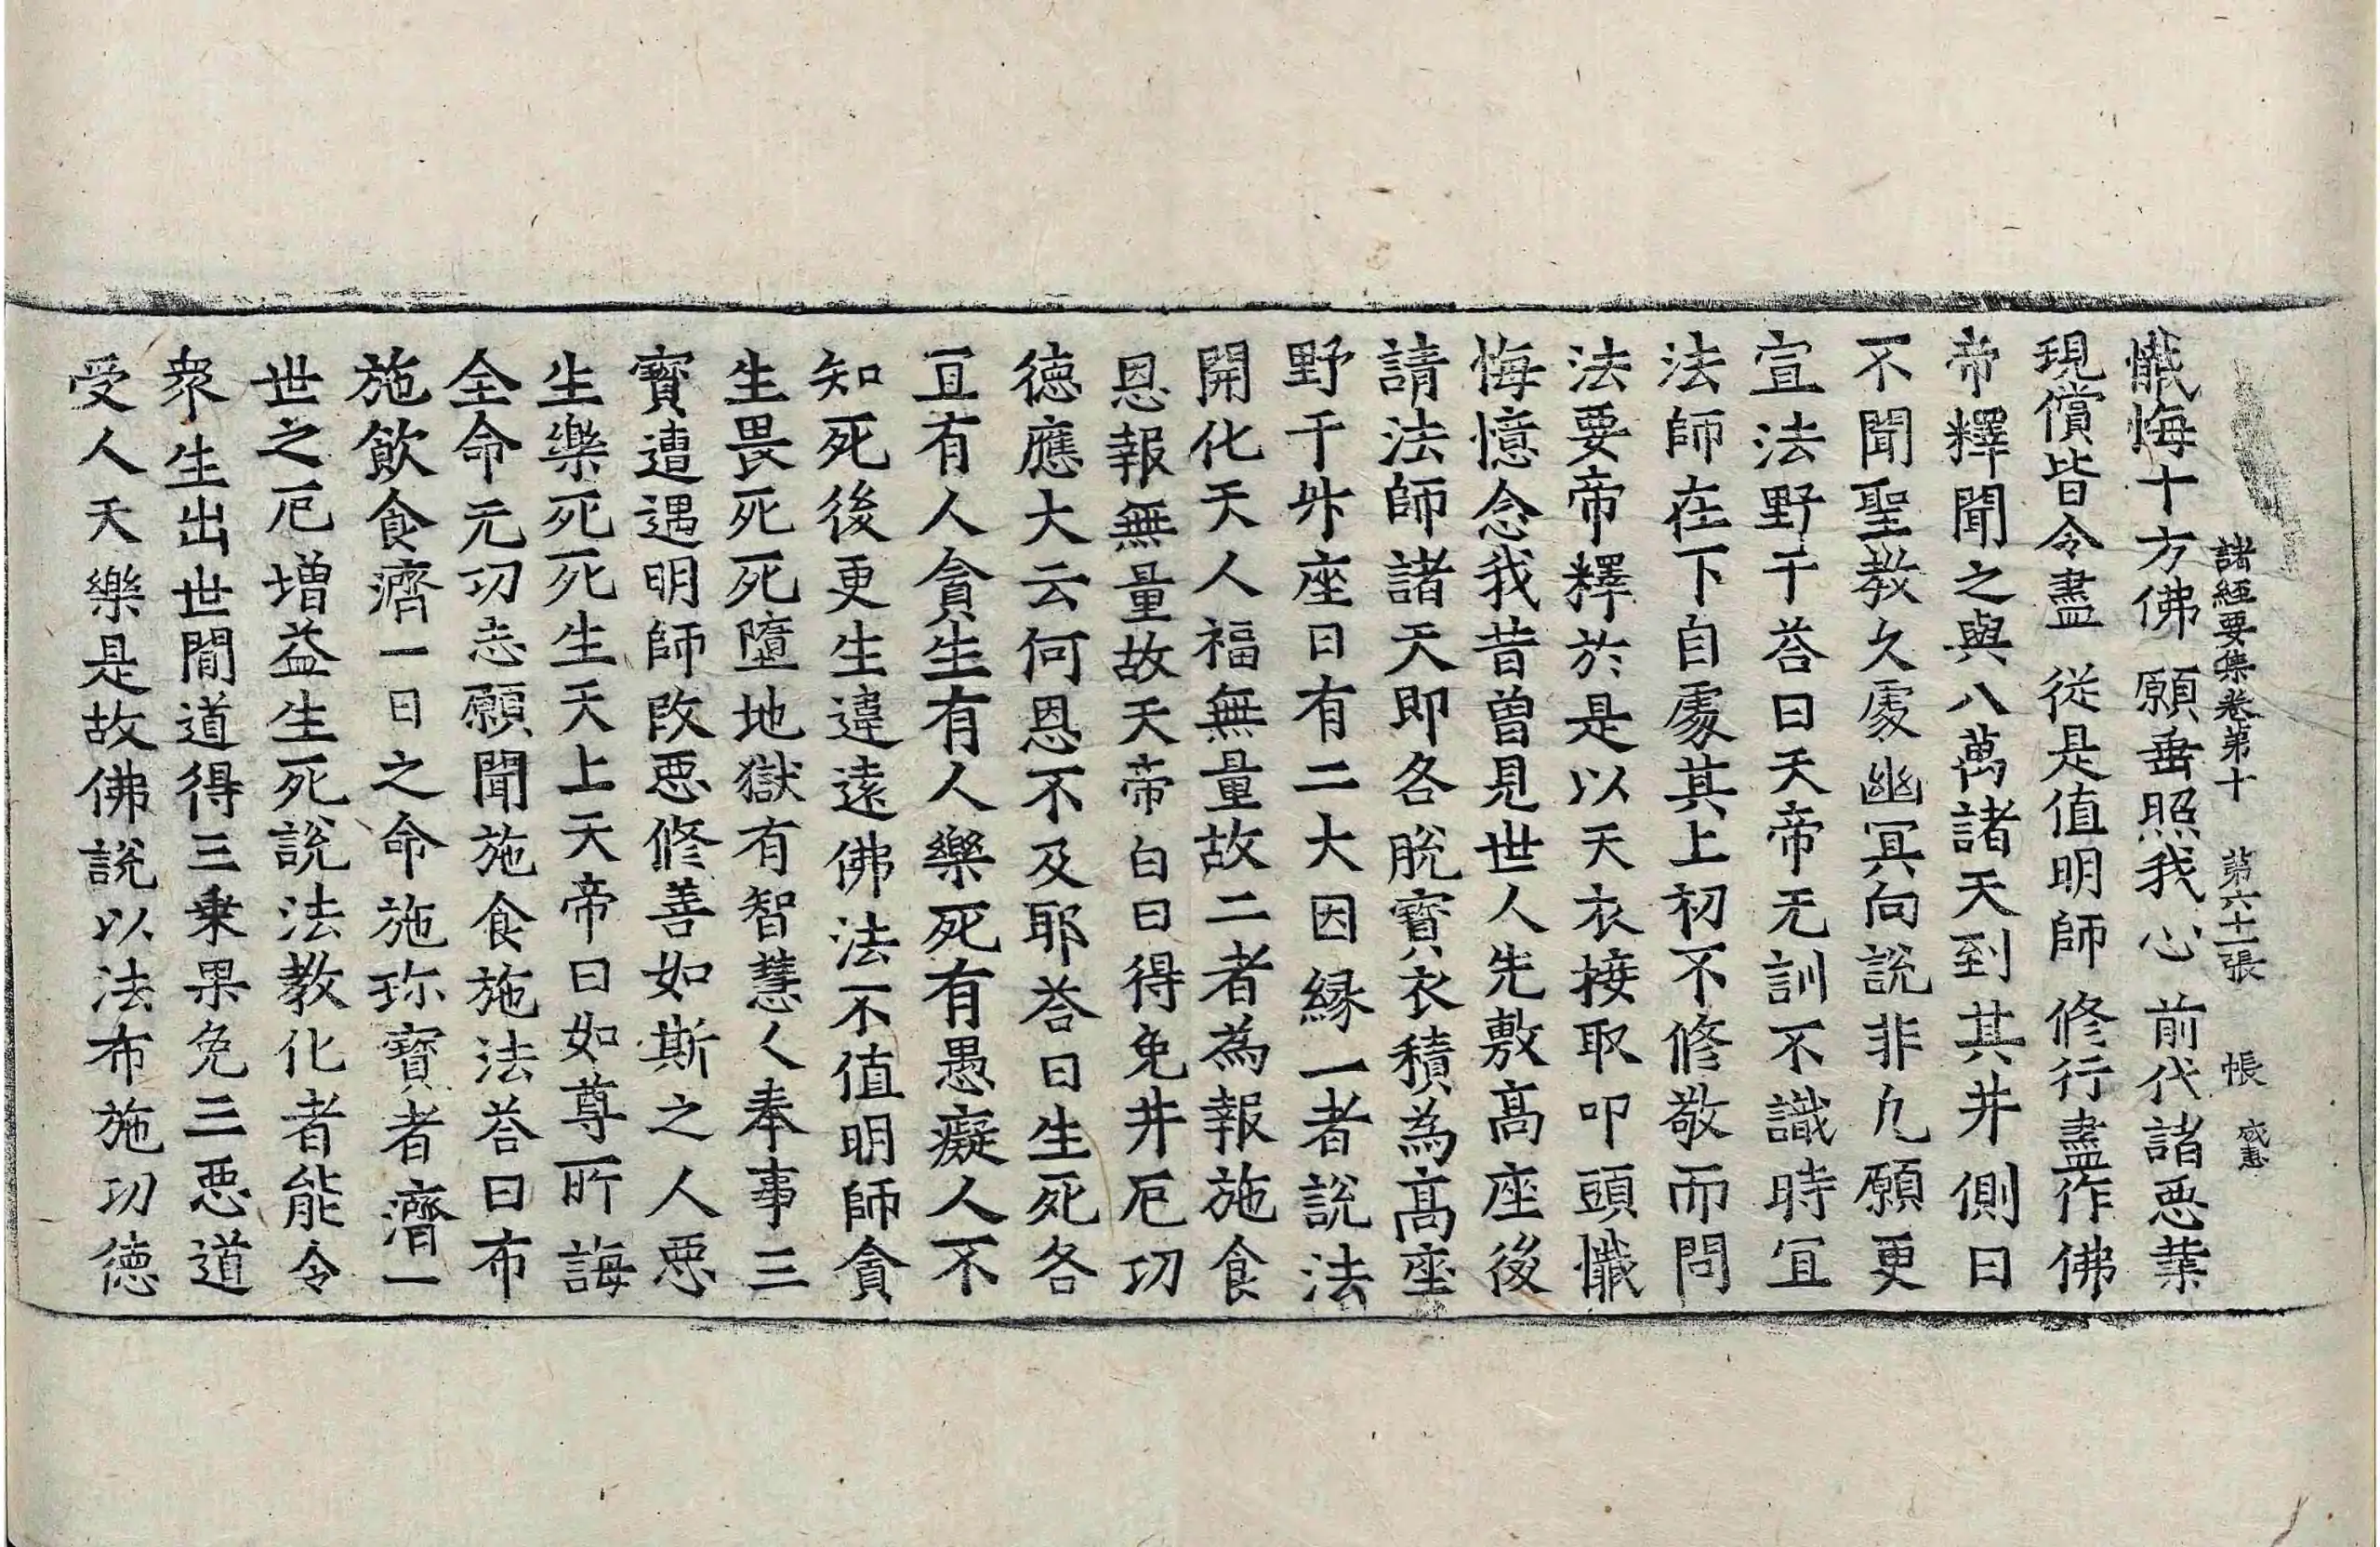 諸經要集卷第十 第六十二張 帳
懺悔十方佛 願垂照我心 前代諸惡業
現償皆令盡 從是值明師 修行盡作佛
帝釋聞之與八萬諸天到其井側曰
不聞聖教久處幽冥向說非凢願更
宣法野干荅曰天帝无訓不識時冝
法師在下自處其上初不修敬而問
法要帝釋於是以天衣接取叩頭懺
悔憶念我昔曽見世人先敷髙座後
請法師諸天即各脫寶衣積為髙座
野干昇座曰有二大因縁一者說法
開化天人福無量故二者為報施食
恩報無量故天帝白曰得免井厄功
德應大云何恩不及耶荅曰生死各
冝有人貪生有人樂死有愚癡人不
知死後更生違遠佛法不值明師貪
生畏死死墮地獄有智慧人奉事三
寶遭遇明師改惡修善如斯之人惡
生樂死死生天上天帝曰如尊所誨
全命元功志願聞施食施法荅曰布
施飲食濟一日之命施珎寶者濟一
世之厄增益生死說法教化者能令
衆生出世間道得三乗果免三惡道
受人天樂是故佛說以法布施功德